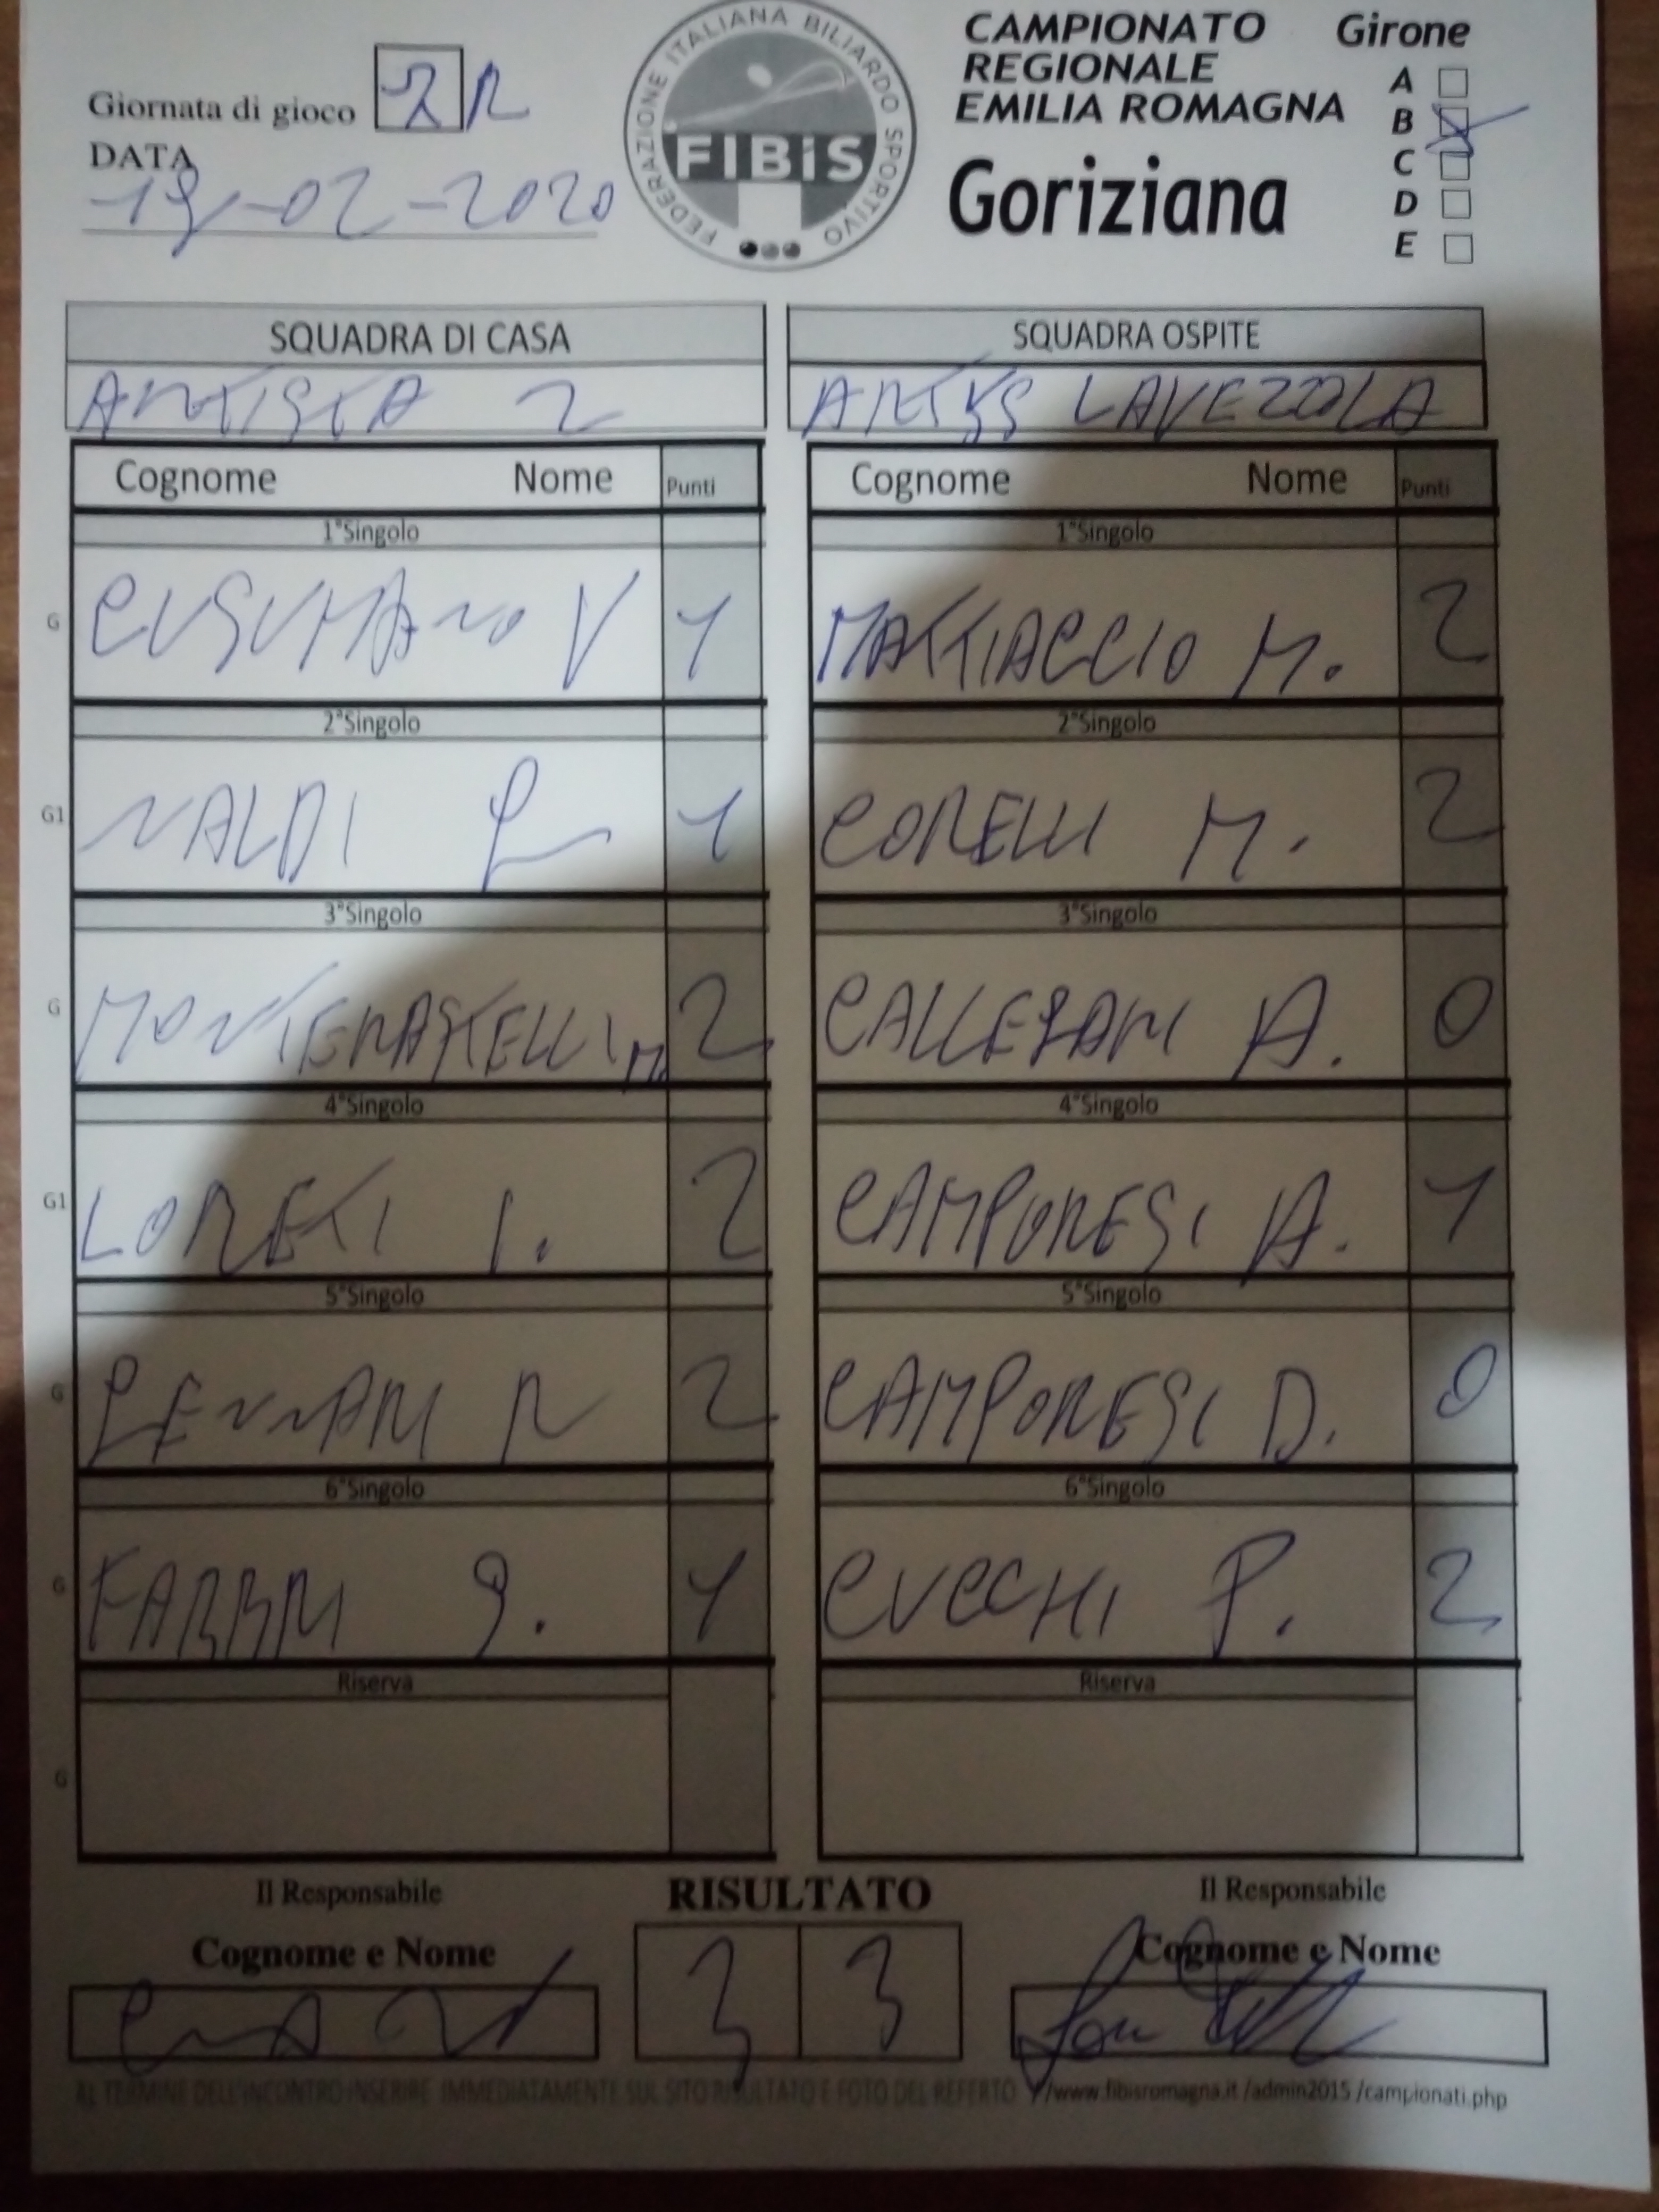 CAMPIONATO Girone
REGIONALE A
EMILIA ROMAGNA B
Giornata di gioco 2 R
FEDERAZIONE ITALIANA BILIARDO SPORTIVO
FIBiS
DATA C
19-02-2020
Goriziana D
E
SQUADRA DI CASA SQUADRA OSPITE
ARTISTA 2 LAVEZZOLA
Cognome Nome Punti Cognome Nome Punti
1°Singolo 1°Singolo
G CUSUMANO V 1 MATTIACCIO M. 2
2°Singolo 2°Singolo
G1 NALDI 1 CORELLI M. 2
3°Singolo 3°Singolo
G MONTERASTELLI M. 2 CALLEGARI A. 0
4°Singolo 4°Singolo
G1 LORETI I. 2 CAMPORESI A. 1
5°Singolo 5°Singolo
G R 2 CAMPORESI D. 0
6°Singolo 6°Singolo
G FABBRI G. 1 CUCCHI P. 2
Riserva Riserva
G
Il Responsabile RISULTATO Il Responsabile
Cognome e Nome 3 3 Cognome e Nome
AL TERMINE DELL'INCONTRO INSERIRE IMMEDIATAMENTE SUL SITO RISULTATO E FOTO DEL REFERTO //www.fibisromagna.it /admin2015 /campionati.php